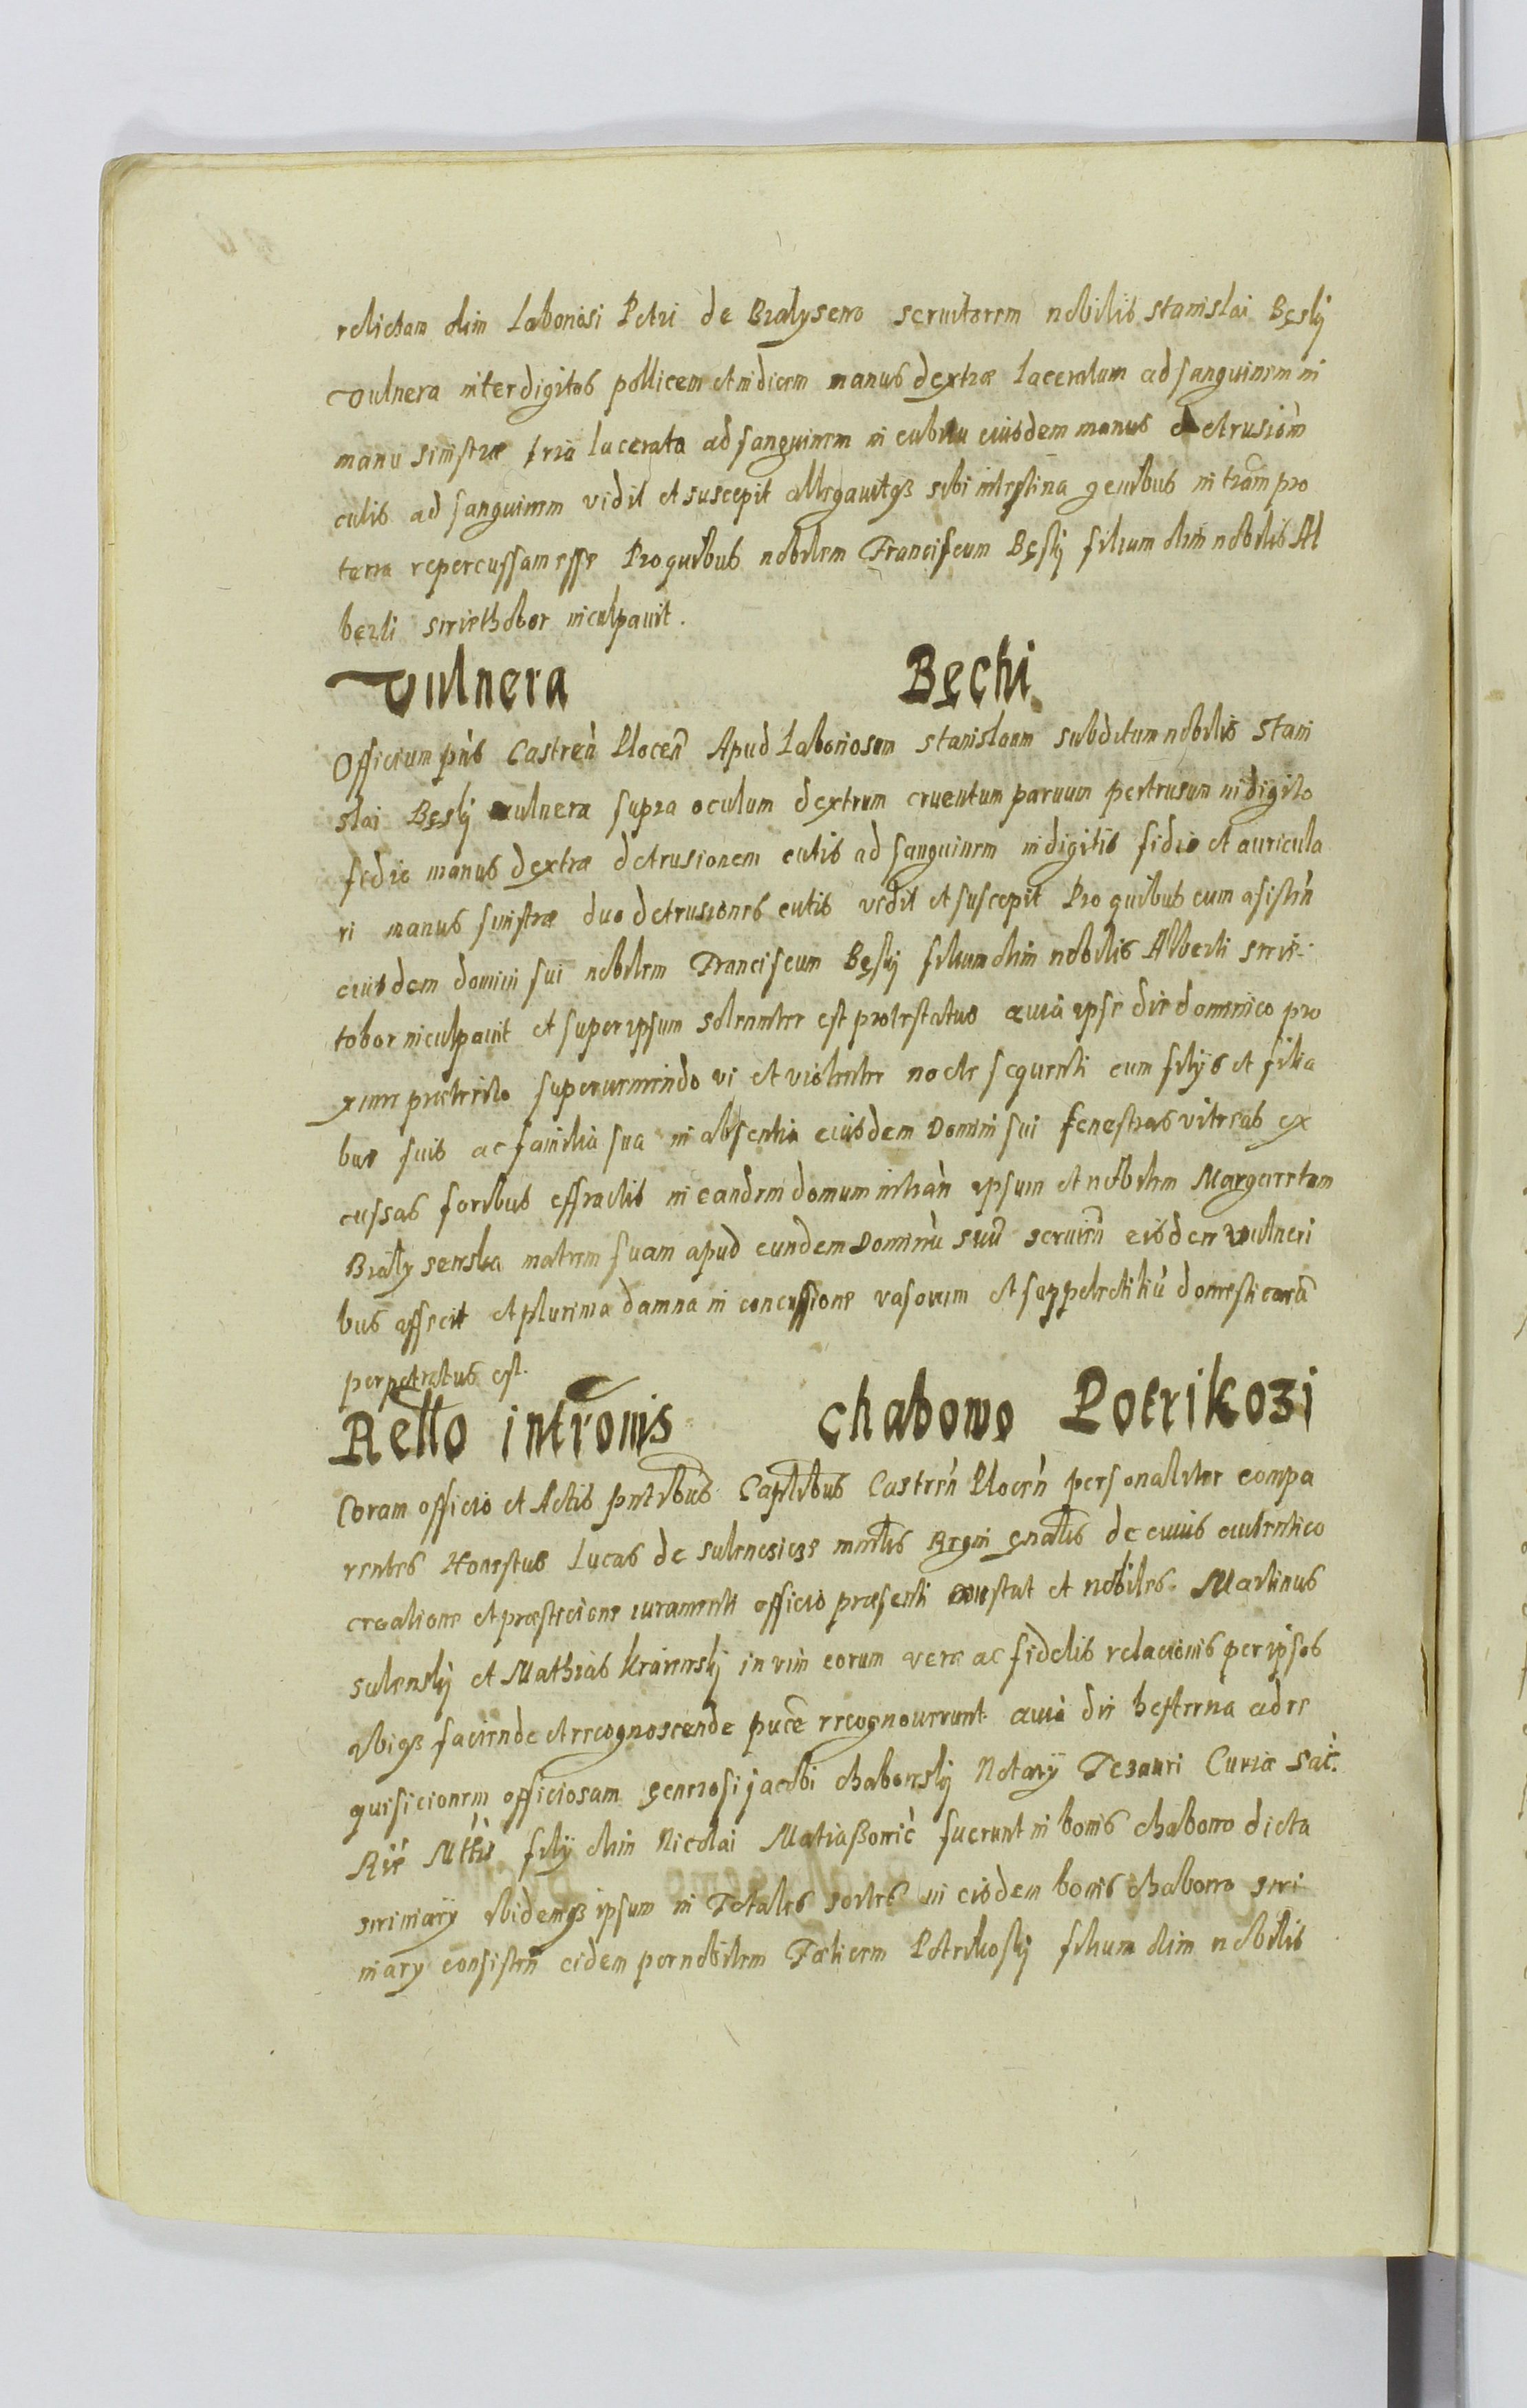 relictam olim Laboriosi Petri de Białysewo seruitorem nobilis Stanislai Bęsky
vulnera inter digitos pollicem et indicem manus dextræ laceratum ad sanguinem in
manu sinistræ tria lacerata ad sanguinem in cubitu eiusdem manus detrusiom
cutis ad sanguinem vidit et suscepit allegavitqʒ sibi intestina genibus in tram pro
terra repercussam esse Pro quibus nobilem Franciscum Bęsky filium olim nobilis Al
berti siriethobor inculpavit.
Vulnera Bęchi
Officium pñs Castreñ Plocen Apud Laboriosum Stanislaum subditum nobilis Stani
slai Bęsky vulnera supra oculum dextrum cruentum parvum pertrusum in digito
fidic manus dextræ detrusionem cutis ad sanguinem in digitis fidic et auricula
ri manus sinistræ duo detrusiones cutis vidit et suscepit Pro quibus cum asisteñ
eiusdem domini sui nobilem Franciscum Bęsky filium olim nobilis Alberti sirie
tobor inculpavit et super ipsum solenniter est protestatus quia ipse die dominico pro
xime præterito superveniendo vi et violenter nocte sequenti cum filÿs et filia
bus suis ac familia sua in absentia eiusdem Domini sui fenestras vitreas ex
cussas foribus effractis in eandem domum intrañ ipsum et nobilem Margaretam
Białysewska matrem suam apud eundem Dominũ suũ serviẽn eisdem vulneri
bus affecit et plurima damna in concussione vasorum et suppelectiliũ domesticorũ
perpetratus est.
Rełło intromis Chabowo Potrikozi
Coram officio et Actis pñtibus Captlibus Castreñ Plocen personaliter compa
rentes Honestus Lucas de Sulencicze mntlis Regni gñalis de cuius autentico
creatione et præsticione iuramenti officio præsenti constat et nobiles Martinus
Sulensky et Mathias Kraiewsky in vim eorum veræ ac fidelis relacionis per ipsos
ubiqʒ faciende et recognoscende puce recognoverunt quia die hesterna ad re
quisicionem officiosam generosi Jacobi Chabowsky Notarÿ Tezauri Curiæ Sac.
Rie Mttis filÿ olim Nicolai Matiaßowic fuerunt in bonis Chabowo dicta
siriniary ibidemqʒ ipsum in Totales sortes in eisdem bonis Chabowo siri
niary consisteñ eidem per nobilem Fælicem Petrikosky filium olim nobilis